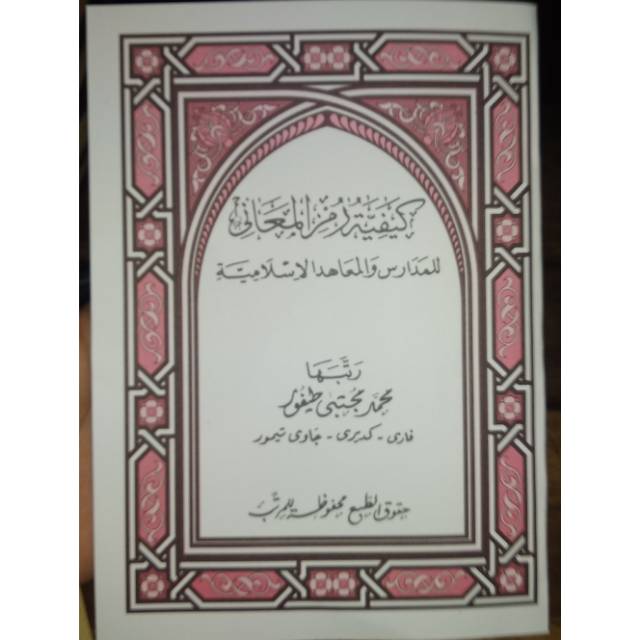 كَيْفِيَّةُ رُمْزِ الْمَعَانِي
لِلمَدَارِسِ وَالمَعَاهِدِ الإِسْلَامِيَّة
رَتَّبَهَا
محمد مجتبى طيفور
فارى - كديرى - جاوى تيمور
حقوق الطبع محفوظة للمرتّب